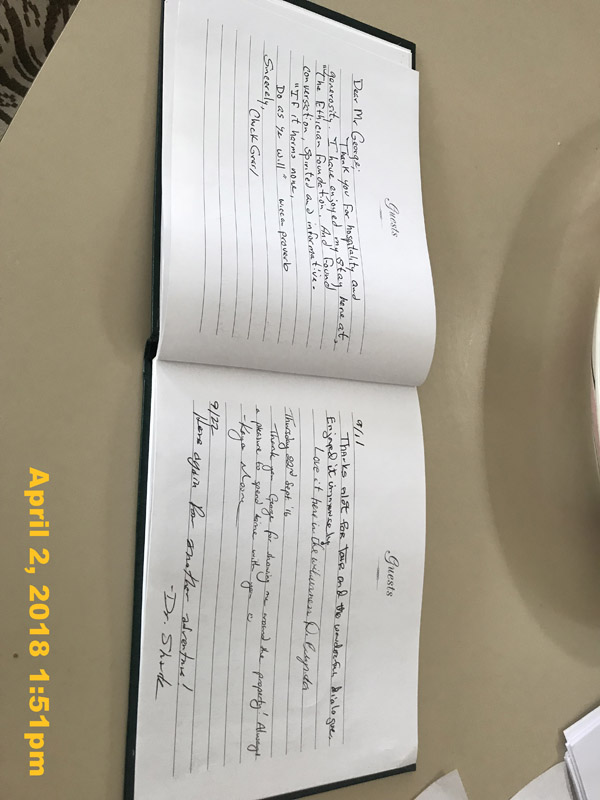 Guests
Dear Mr. George;
Thank you for hospitality and
generosity. I have enjoyed my stay here at
"The Ethician Foundation. And found
conversation, Spirited and informative.
"If it harms none,
Do as ye will" wican proverb
Sincerely,
Chuck
Guests
9/11
Thanks alot for tour and the wonderful dialogue.
Enjoyed it immensely
Love it here in the wilderness D.
Thursday 22nd Sept '16
Thank you George for showing me around the property! Always
a pleasure to spend time with you
- Kaya
9/27
Here again for another adventure!
- Dr. Shock
April 2, 2018 1:51pm